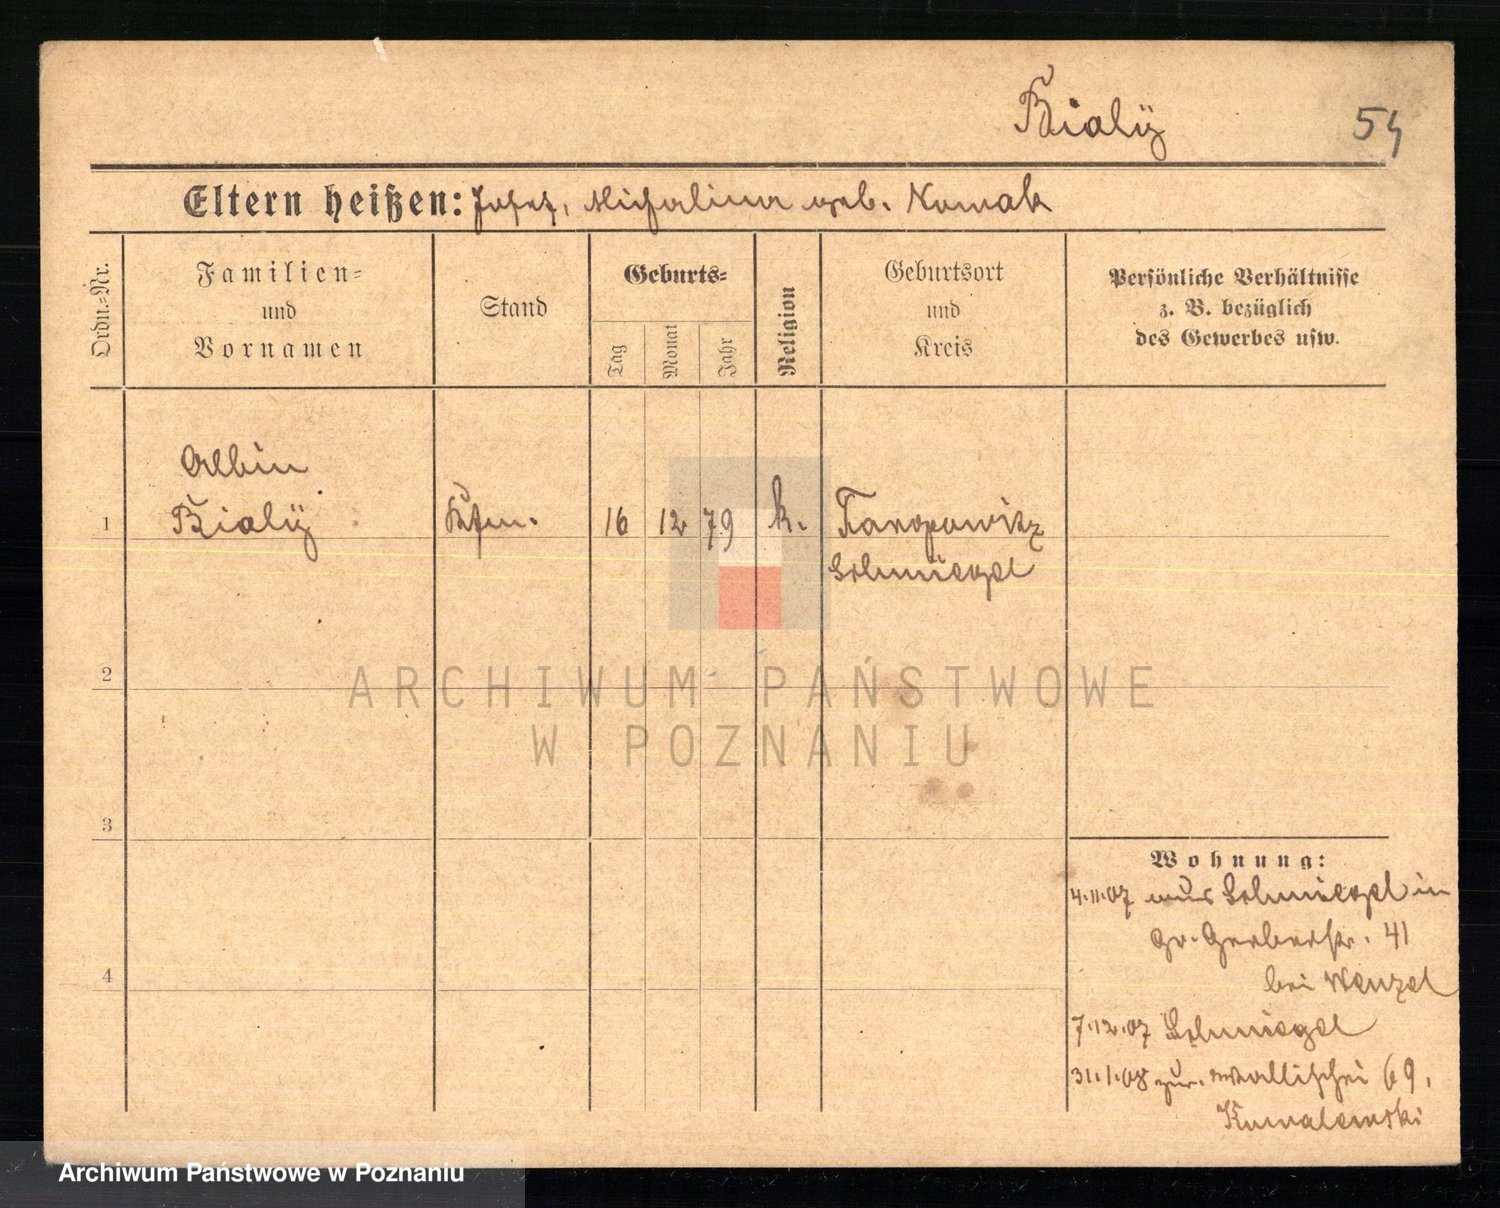 Bialÿ
54
Eltern heißen: Josef, Michalina geb. Nowak
Ordn.-Nr.
Familien-
und
Vornamen
Stand
Geburts-
Tag
Monat
Jahr
Religion
Geburtsort
und
Kreis
Persönliche Verhältnisse
z. B. bezüglich
des Gewerbes usw.
Albin
1 Bialÿ Kfm. 16 12 79 k.
Schmiegel
2
ARCHIWUM PAŃSTWOWE
W POZNANIU
3
Wohnung:
4.11.07 aus Schmiegel in
Gr. Gerberstr. 41
bei Wenzel
4
7.12.07 Schmiegel
31.1.08 zur. Wallischei 69,
Kowalewski
Archiwum Państwowe w Poznaniu